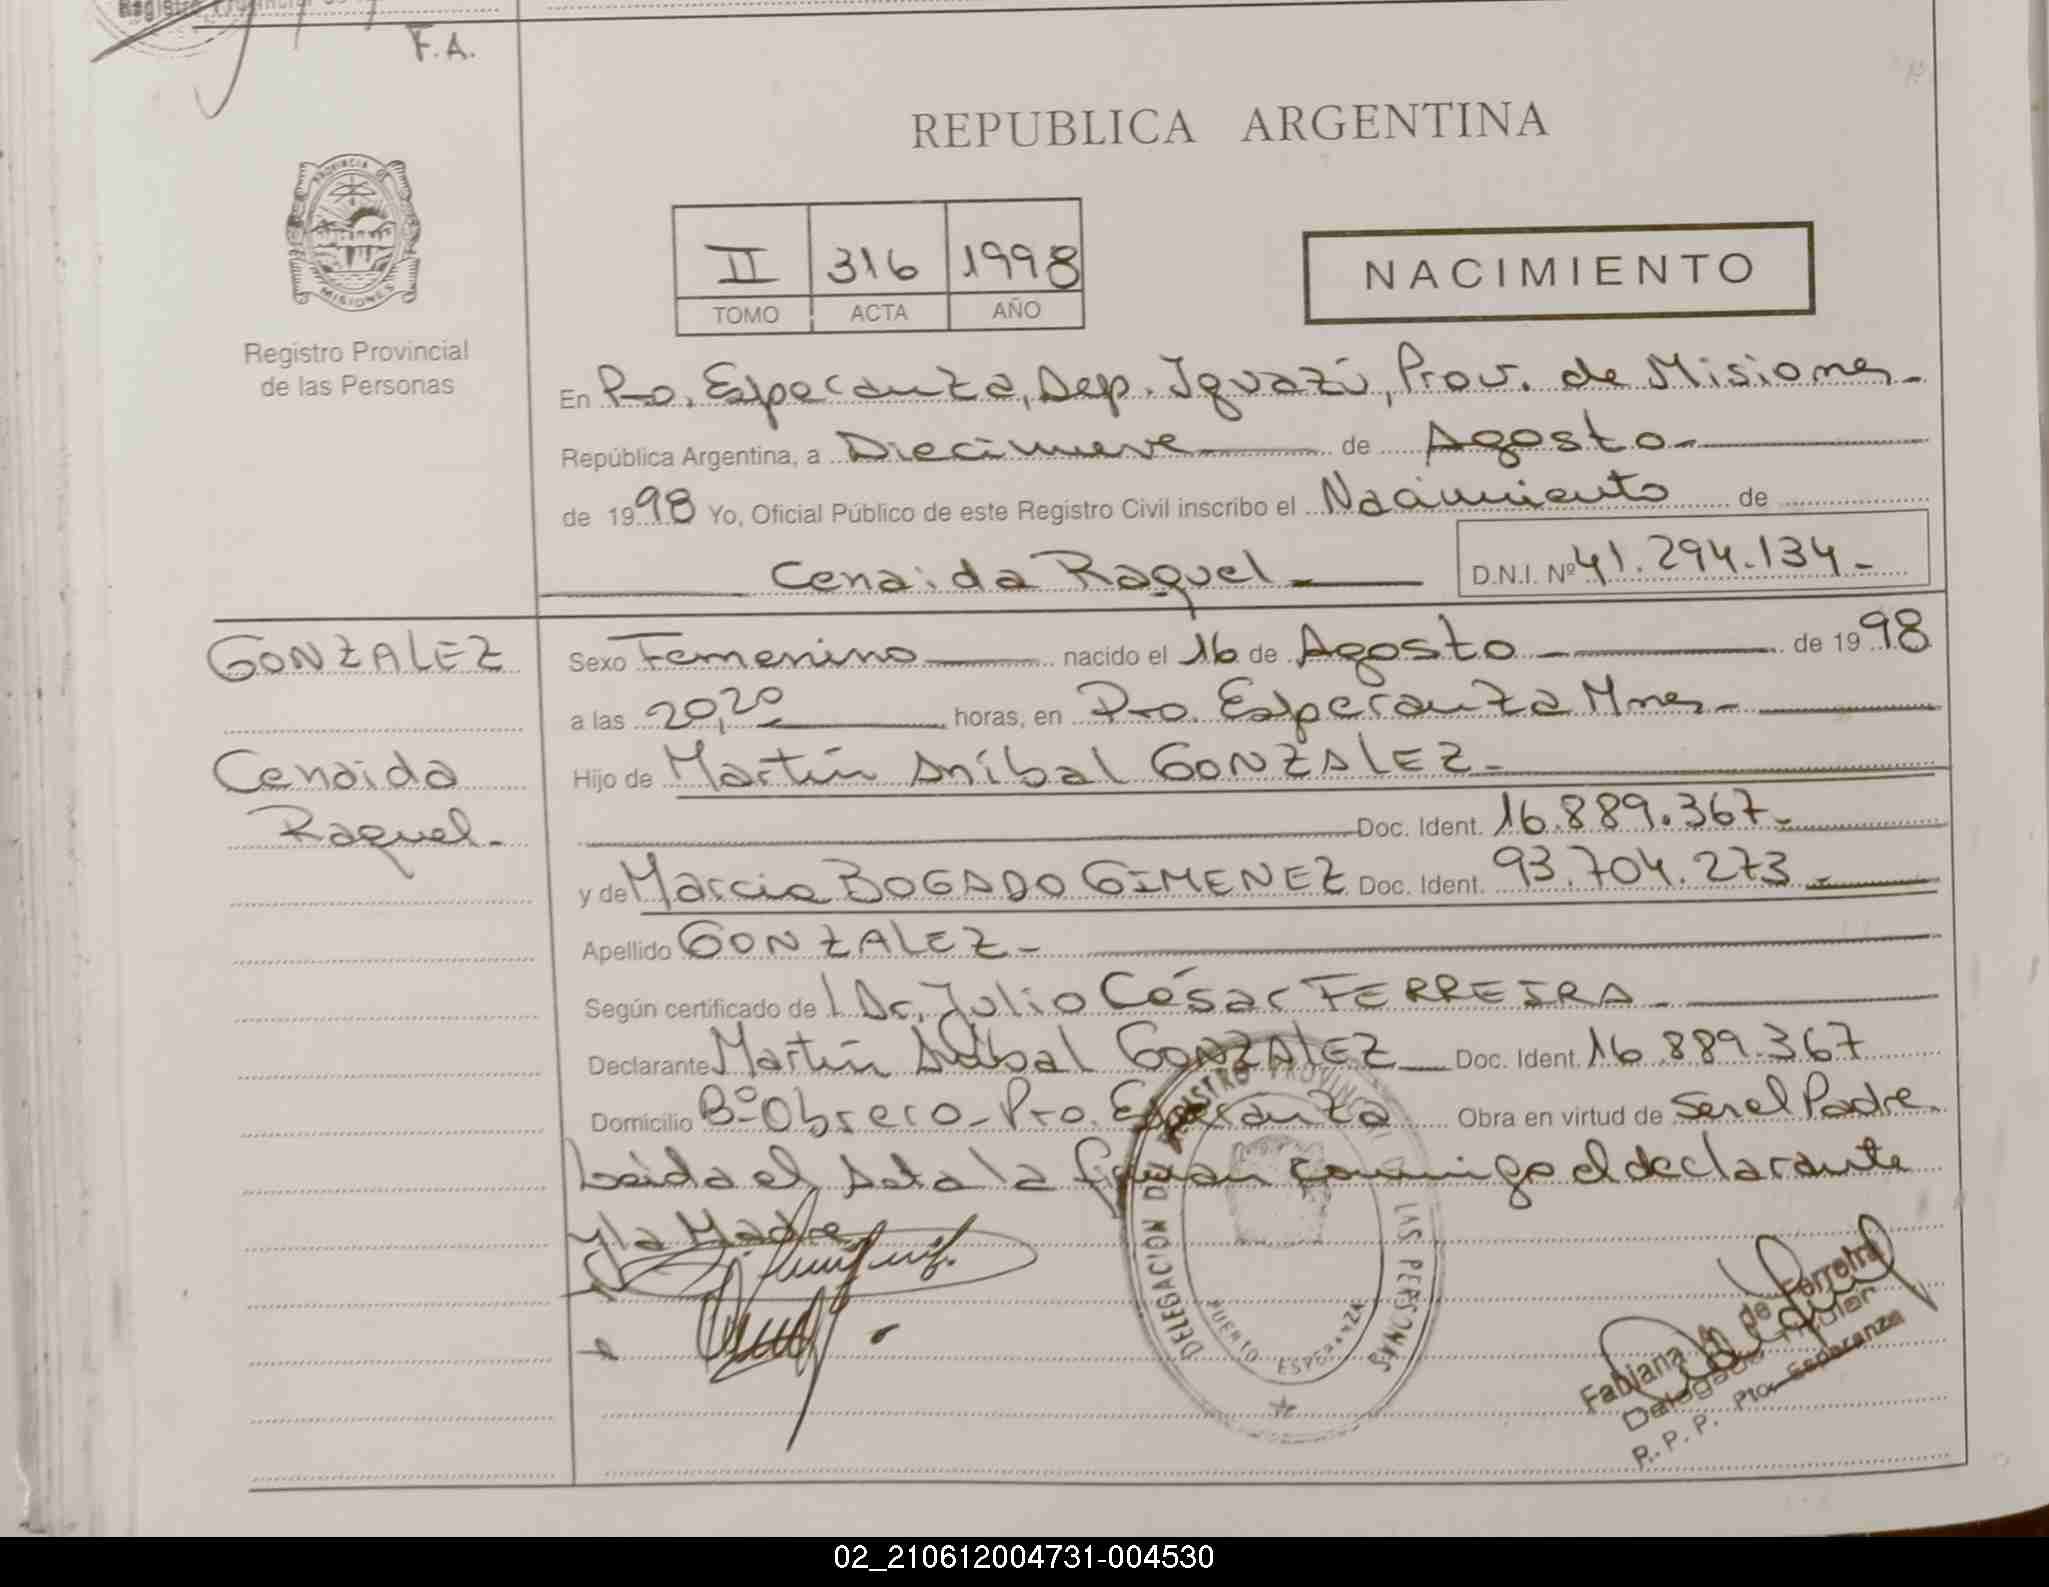 F.A.
REPUBLICA ARGENTINA
PROVINCIA DE
MISIONES
Registro Provincial
de las Personas
II 316 1998
TOMO ACTA AÑO
NACIMIENTO
En Pto. Esperanza, Dep. Iguazú, Prov. de Misiones-
República Argentina, a Diecinueve de Agosto-
de 1998 Yo, Oficial Público de este Registro Civil inscribo el Nacimiento de
Cenaida Raquel- D.N.I. Nº 41.294.134-
GONZALEZ
Cenaida
Raquel-
Sexo Femenino nacido el 16 de Agosto de 1998
a las 20,20 horas, en Pto. Esperanza Mnes-
Hijo de Martín Aníbal GONZALEZ-
Doc. Ident. 16.889.367-
y de Marcia BOGADO GIMENEZ Doc. Ident. 93.704.273-
Apellido GONZALEZ-
Según certificado de Dr. Julio César FERREIRA-
Declarante Martín Aníbal GONZALEZ Doc. Ident. 16.889.367
Domicilio Bº Obrero-Pto. Esperanza Obra en virtud de Ser el Padre.
Leída el Acta la firman conmigo el declarante
y la Madre
DELEGACION DEL REGISTRO PROVINCIAL DE LAS PERSONAS
PUERTO ESPERANZA
Fabiana de Ferreira
Delegado Titular
R.P.P. Pto. Esperanza
02_210612004731-004530